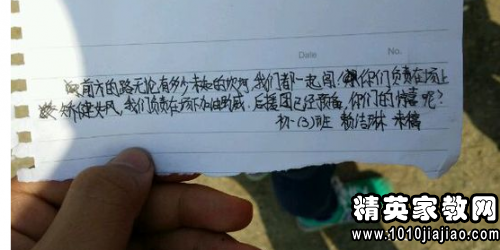 Date No.
前方的路无论有多少未知的坎坷,我们都一起闯!你们负责在场上
矫健失风,我们负责在场下加油呐喊。后援团已经预备,你们的惊喜呢?
初一(3)班 杨洁琳 朱
精英家教网
www.1010jiajiao.com